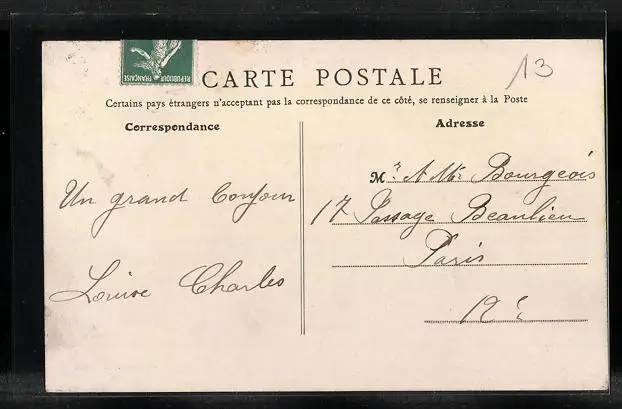 REPUBLIQUE FRANÇAISE
CARTE POSTALE
13
Certains pays étrangers n'acceptent pas la correspondance de ce côté, se renseigner à la Poste
Correspondance
Adresse
Un grand bonjour
Louise Charles
Mr & Mme Bourgeois
17 Passage Beaulieu
Paris
12e